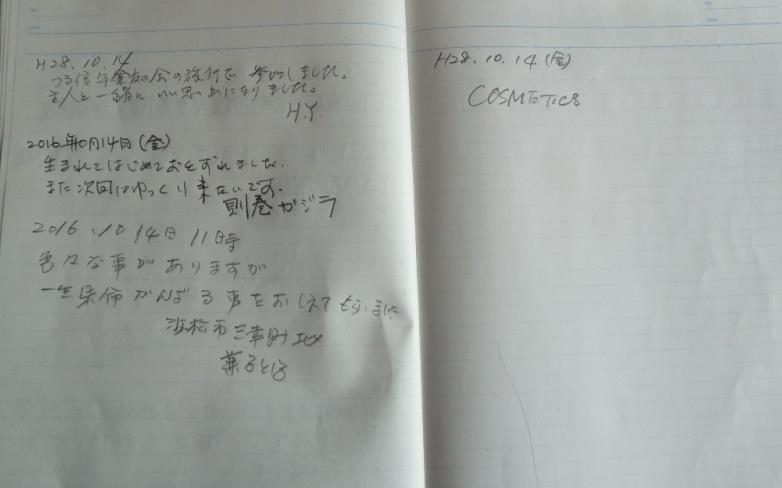 H28.10.14
年金友の会の旅行で 参加しました。
主人と一緒に いい思い出になりました。
H.Y.
2016年10月14日(金)
生まれてはじめておとずれました。
また次回はゆっくり来たいです。
則巻ガジラ
2016.10 14日 11時
色々な事がありますが
一生懸命がんばる事をおしえてもらいました
浜松市三幸町
H28.10.14(金)
COSMETICS